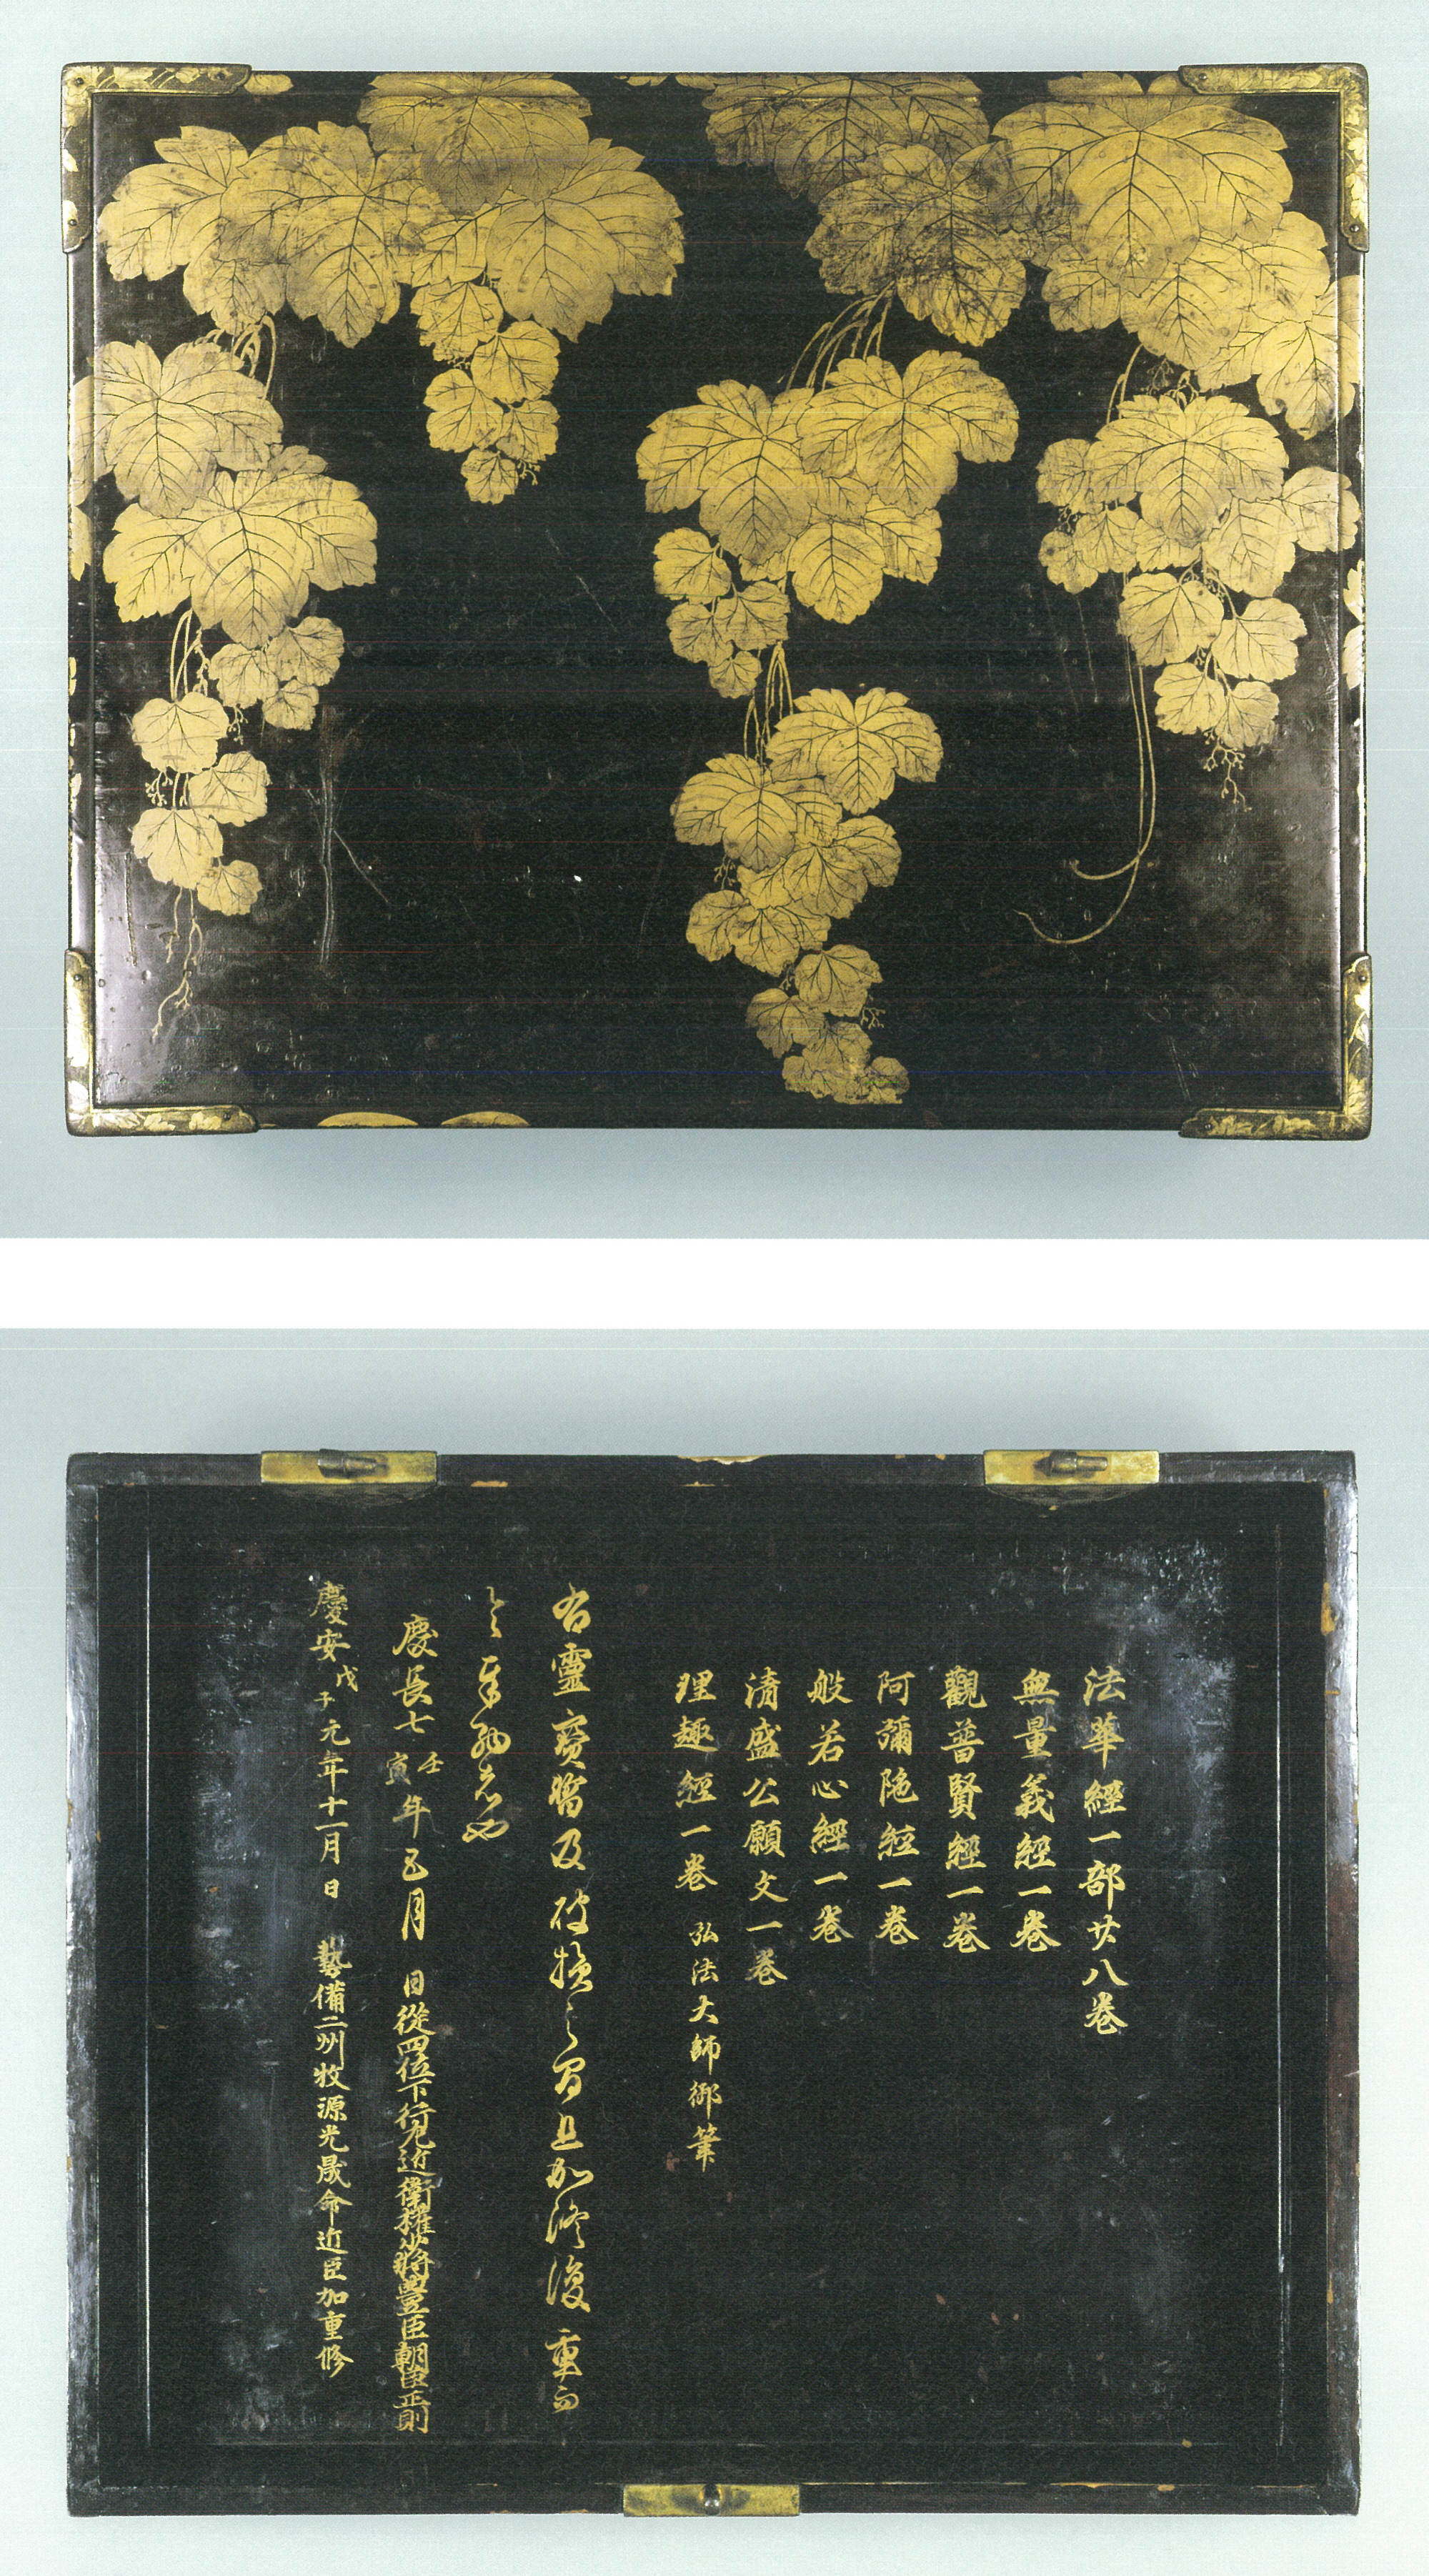 法華經一部廿八卷
無量義經一卷
觀普賢經一卷
阿彌陁經一卷
般若心經一卷
清盛公願文一卷
理趣經一卷 弘法大師御筆
右靈寶當及破損之間且加修復重而
令奉納者也
慶長七壬寅年五月 日從四位下行左近衛權少將豊臣朝臣正則
慶安戊子元年十一月日 藝備二州牧源光晟命近臣加重修